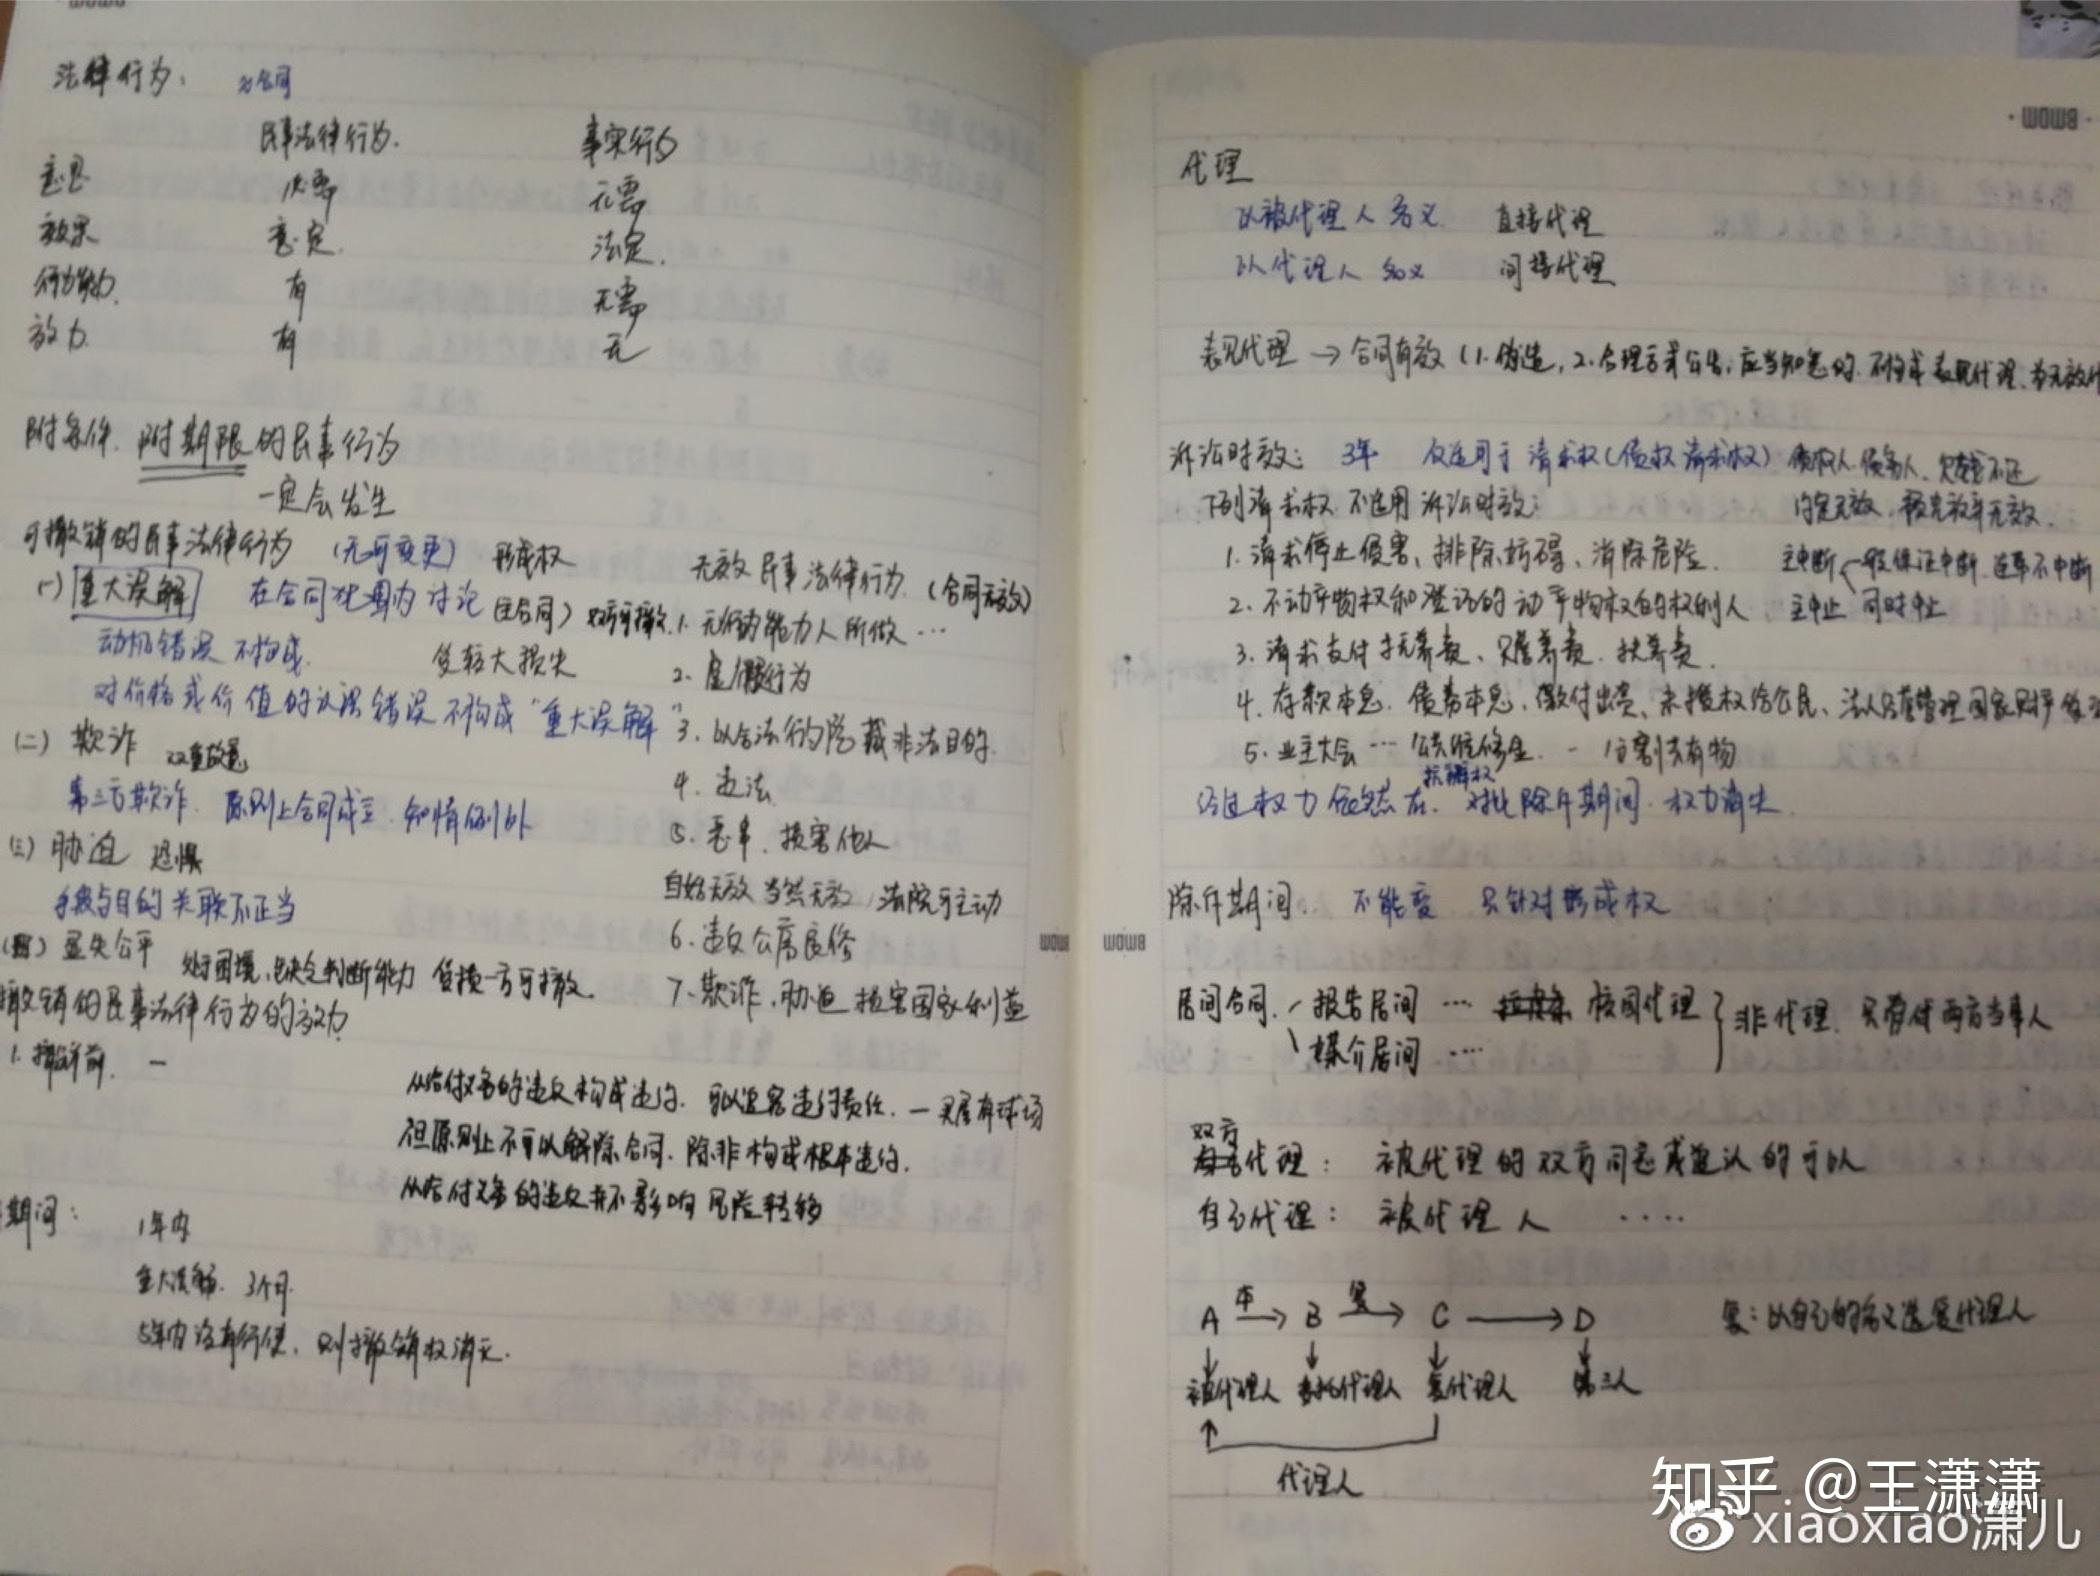 法律行为：
民事法律行为. 事实行为
意思 必需 无需
效果 意定. 法定.
行为能力. 有 无需
效力. 有 无
附条件. 附期限的民事行为
一定会发生
可撤销的民事法律行为 (无可变更) 形成权
(一) 重大误解 在合同范围内讨论 双方可撤.
动机错误 不构成. 受较大损失
对价格或价值的认识错误不构成“重大误解”
(二) 欺诈 双重故意
第三方欺诈. 原则上合同成立. 知情例外
(三) 胁迫 恐惧
手段与目的关联不正当
(四) 显失公平 处于困境、缺乏判断能力 受损一方可撤.
撤销的民事法律行为的效力.
1. 撤销前. —
无效民事法律行为. (合同无效)
1. 无行为能力人所做…
2. 虚假行为
3. 以合法行为隐藏非法目的.
4. 违法.
5. 恶串. 损害他人
自始无效 当然无效, 法院可主动
6. 违反公序良俗
7. 欺诈. 胁迫 损害国家利益
从给付义务的违反构成违约. 可以追究违约责任. — 买房有球场
但原则上不可以解除合同. 除非构成根本违约.
从给付义务的违反并不影响风险转移
期间： 1年内
重大误解. 3个月.
5年内没有行使. 则撤销权消灭.
BMOM
代理
以被代理人名义. 直接代理
以代理人名义 间接代理
表见代理 → 合同有效 (1. 伪造, 2. 合理方式公告, 应当知悉的. 不构成表见代理. 为无效
诉讼时效： 3年 仅适用于请求权(债权请求权) 债权人. 债务人.
下列请求权不适用诉讼时效： 约定无效. 预先放弃无效.
1. 请求停止侵害、排除妨碍、消除危险. 主中断 一般保证中断. 连带不中断
2. 不动产物权和登记的动产物权的权利人 主中止 同时中止
3. 请求支付抚养费、赡养费. 扶养费.
4. 存款本息. 债券本息. 缴付出资. 未授权给公民、法人经营管理国家财产
5. 业主大会 … 公共维修金. - 分割共有物
抗辩权
经过权力仍然存在. 对比除斥期间. 权力消失.
除斥期间： 不能变 只针对形成权
BMOM BMOM
居间合同. 报告居间 … 校园代理
媒介居间 …
非代理. 只有付两方当事人
双方代理： 被代理的双方同意或追认的可以
自己代理： 被代理人 ····
A 本→ B 复→ C → D 复：以自己的名义选复代理人
被代理人 委托代理人 复代理人 第三人
代理人
知乎 @王潇潇
xiaoxiao潇儿